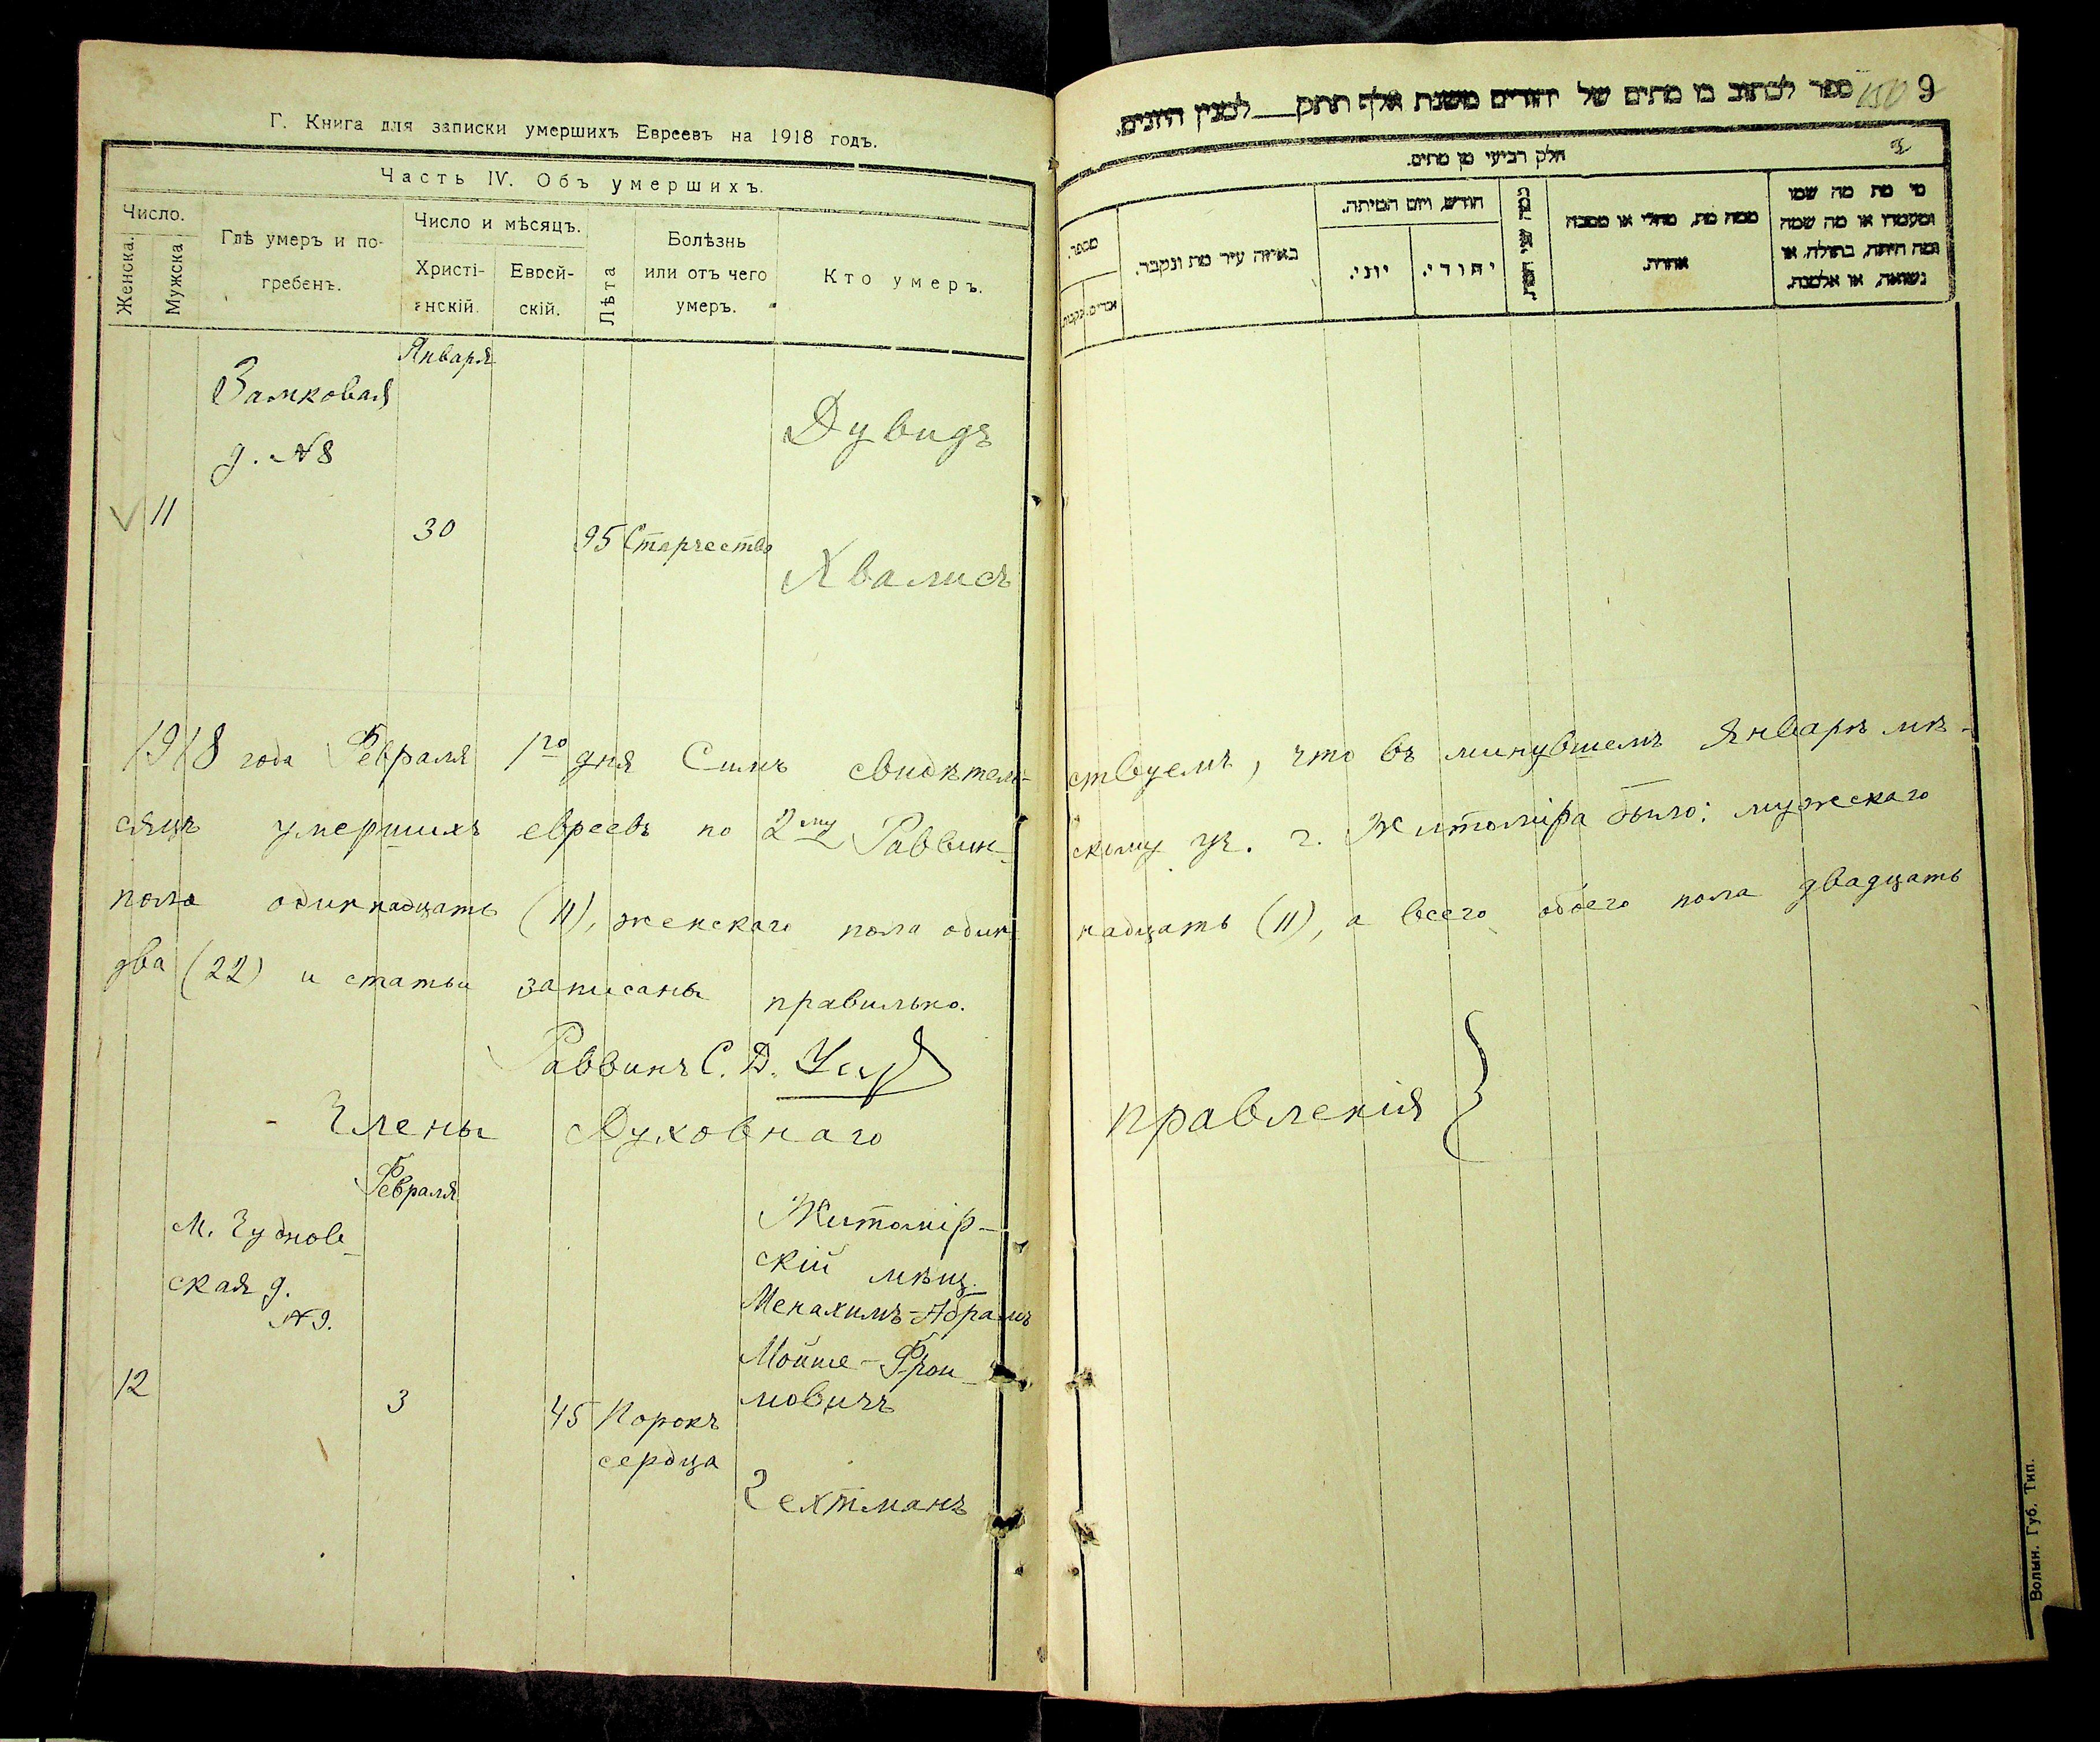 Г. Книга для записки умершихъ Евреевъ на 1918 годъ.
Часть IV. Объ умершихъ.
Число.
Женска.
Мужска
Гдѣ умеръ и по-
гребенъ.
Число и мѣсяцъ.
Христі-
анскій.
Еврей-
скій.
Лѣта
Болѣзнь
или отъ чего
умеръ.
Кто умеръ.
Января
Замковая
д. №8
11
30
95
Старчество
Дувидъ
Хвалисъ
1918 года Февраля 1го дня Симъ свидѣтель-
ствуемъ, что въ минувшемъ Январѣ мѣ-
сяцѣ умершихъ евреевъ по 2му Раввин-
скому уч. г. Житоміра было: мужескаго
пола одиннадцать (11), женскаго пола один-
надцать (11), а всего обоего пола двадцать
два (22) и статьи записаны правильно.
Раввинъ С. Д.
Члены Духовнаго
правленія }
Февраля
М. Чуднов-
ская д.
№9.
12
3
45
Порокъ
сердца
Житомір-
скій мѣщ.
Менахимъ-Абрамъ
Мойше-Фрои-
мовичъ
Зехтманъ
ספר לכתוב בו מתים של יהודים משנת אלף תתק___למנין היונים.
150
9
חלק רביעי מן מתים.
מספר.
זכרים.
נקבות
באיזה עיר מת ונקבר.
חודש, ויום המיתה.
יוני.
יהודי.
כמה שני המת
ממה מת, מחלי או מסבה
אחרת.
מי מת מה שמו
ומעמדו או מה שמה
ומה היתה, בתולה, או
נשואה, או אלמנה.
Волын. Губ. Тип.